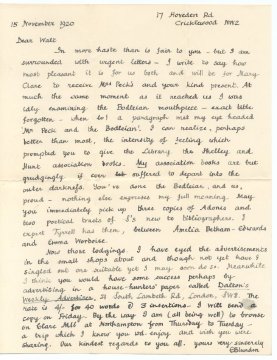 17 Hovenden Rd
Cricklewood NW2
15 November 1920
Dear Watt
In more haste than is fair to you - but I am
surrounded with urgent letters - I write to say how
most pleasant it is for us both and will be for Mary
Clare to receive Mrs Peck's and your kind present. At
much the same moment as it reached us I was
idly examining the Bodleian mouthpiece - exact title
forgotten - when lo! a paragraph met my eye headed
'Mr Peck and the Bodleian'. I can realize, perhaps
better than most, the intensity of feeling which
prompted you to give the Library the Shelley and
Hunt association books. My association books are but
grudgingly if ever suffered to depart into the
outer darkness. You've done the Bodleian, and us,
proud - nothing else expresses my full meaning. May
you immediately pick up three copies of Adonais and
two poetical tracts of S's new to Bibliographers. I
expect Tyrrell has them, between Amelia Betham-Edwards
and Emma Worboise.
Now those lodgings. I have eyed the advertisements
in the small shops about and though not yet have I
singled out one suitable yet I may soon do so. Meanwhile
I think you would have some success perhaps by
advertising in a house-hunters' paper called Dalton's
Weekly Advertiser, South Lambeth Rd, London. The
rate is for 40 words & 3 insertions. I will send a
copy on Friday. By the way I am (all being well) to browse
on Clare MSS at Northampton from Thursday to Tuesday -
a trip which I know you will enjoy, and wish you were
sharing. Our kindest regards to you all. yours very sincerely
EBlunden